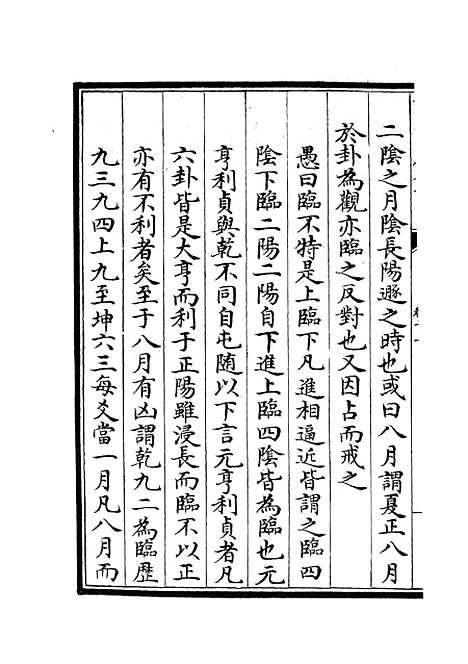 二陰之月陰長陽遯之時也或曰八月謂夏正八月
於卦為觀亦臨之反對也又因占而戒之
愚曰臨不特是上臨下凡進相逼近皆謂之臨四
陰下臨二陽二陽自下進上臨四陰皆為臨也元
亨利貞與乾不同自屯随以下言元亨利貞者凡
六卦皆是大亨而利于正陽雖浸長而臨不以正
亦有不利者矣至于八月有凶謂乾九二為臨歴
九三九四上九至坤六三每爻當一月凡八月而